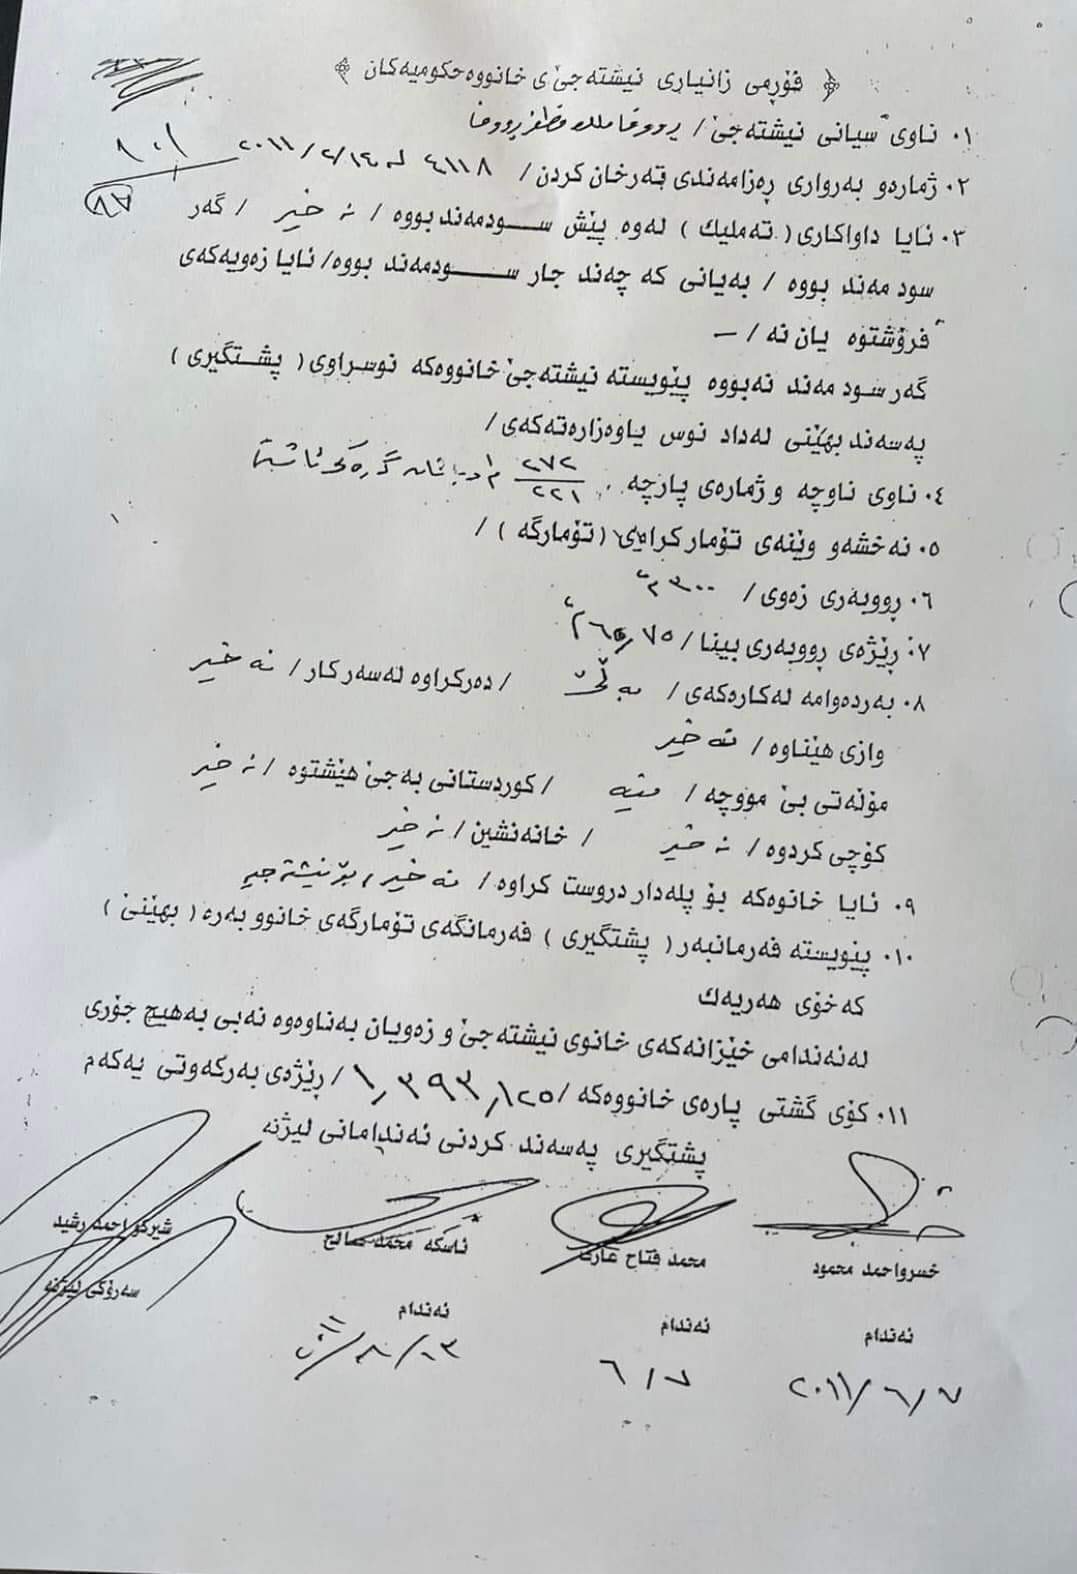 ﴿ فۆڕمی زانیاری نیشتەجێ ی خانووە حکومیەکان ﴾
٠١ ناوی سیانی نیشتەجێ /
٠٢ ژمارەو بەرواری ڕەزامەندی تەرخان کردن / ٤١١٨ لە ٢٠١١/٢/١٤
٨٠١
٨٧
٠٣ ئایا داواکاری ( تەملیك ) لەوە پێش ســـودمەند بووە / نە خێر / گەر
سود مەند بووە / بەیانی کە چەند جار ســـودمەند بووە/ ئایا زەویەکەی
فرۆشتوە یان نە / —
گەر سـود مەند نەبووە پێویستە نیشتەجێ خانووەکە نوسراوی ( پشـتگیری )
پەسەند بهێنی لەداد نوس یاوەزارەتەکەی /
٠٤ ناوی ناوچە و ژمارەی پارچە ٢٧٢/٢٢١ گەڕەکی ئاشتی
٠٥ نەخشەو وێنەی تۆمار کراوی ( تۆمارگە ) /
٠٦ ڕووبەری زەوی / ٣٠٠ م٢
٠٧ ڕێژەی ڕووبەری بینا / ٧٥ م٢
٠٨ بەردەوامە لەکارەکەی / بەڵێ / دەرکراوە لەسەر کار / نە خێر
وازی هێناوە / نە خێر
مۆڵەتی بێ مووچە / نیە / کوردستانی بەجێ هێشتوە / نە خێر
کۆچی کردوە / نە خێر / خانەنشین / نە خێر
٠٩ ئایا خانوەکە بۆ پلەدار دروست کراوە / نە خێر ، بۆ نیشتەجیە
٠١٠ پێویستە فەرمانبەر ( پشتگیری ) فەرمانگەی تۆمارگەی خانوو بەرە ( بهێنێ )
کەخۆی هەریەك
لەئەندامی خێزانەکەی خانوی نیشتەجێ و زەویان بەناوەوە نەبی بەهیچ جۆری
٠١١ کۆی گشتی پارەی خانووەکە / ١,٣٩٣,١٢٥ / ڕێژەی بەرکەوتی یەکەم
پشتگیری پەسەند کردنی ئەندامانی لیژنە
خسرو احمد محمود
محمد فتاح عارف
ئاسکە محمد صالح
شیرکو احمد رشید
ئەندام
ئەندام
ئەندام
سەرۆکی لیژنە
٢٠١١/٦/٧
٦/٧